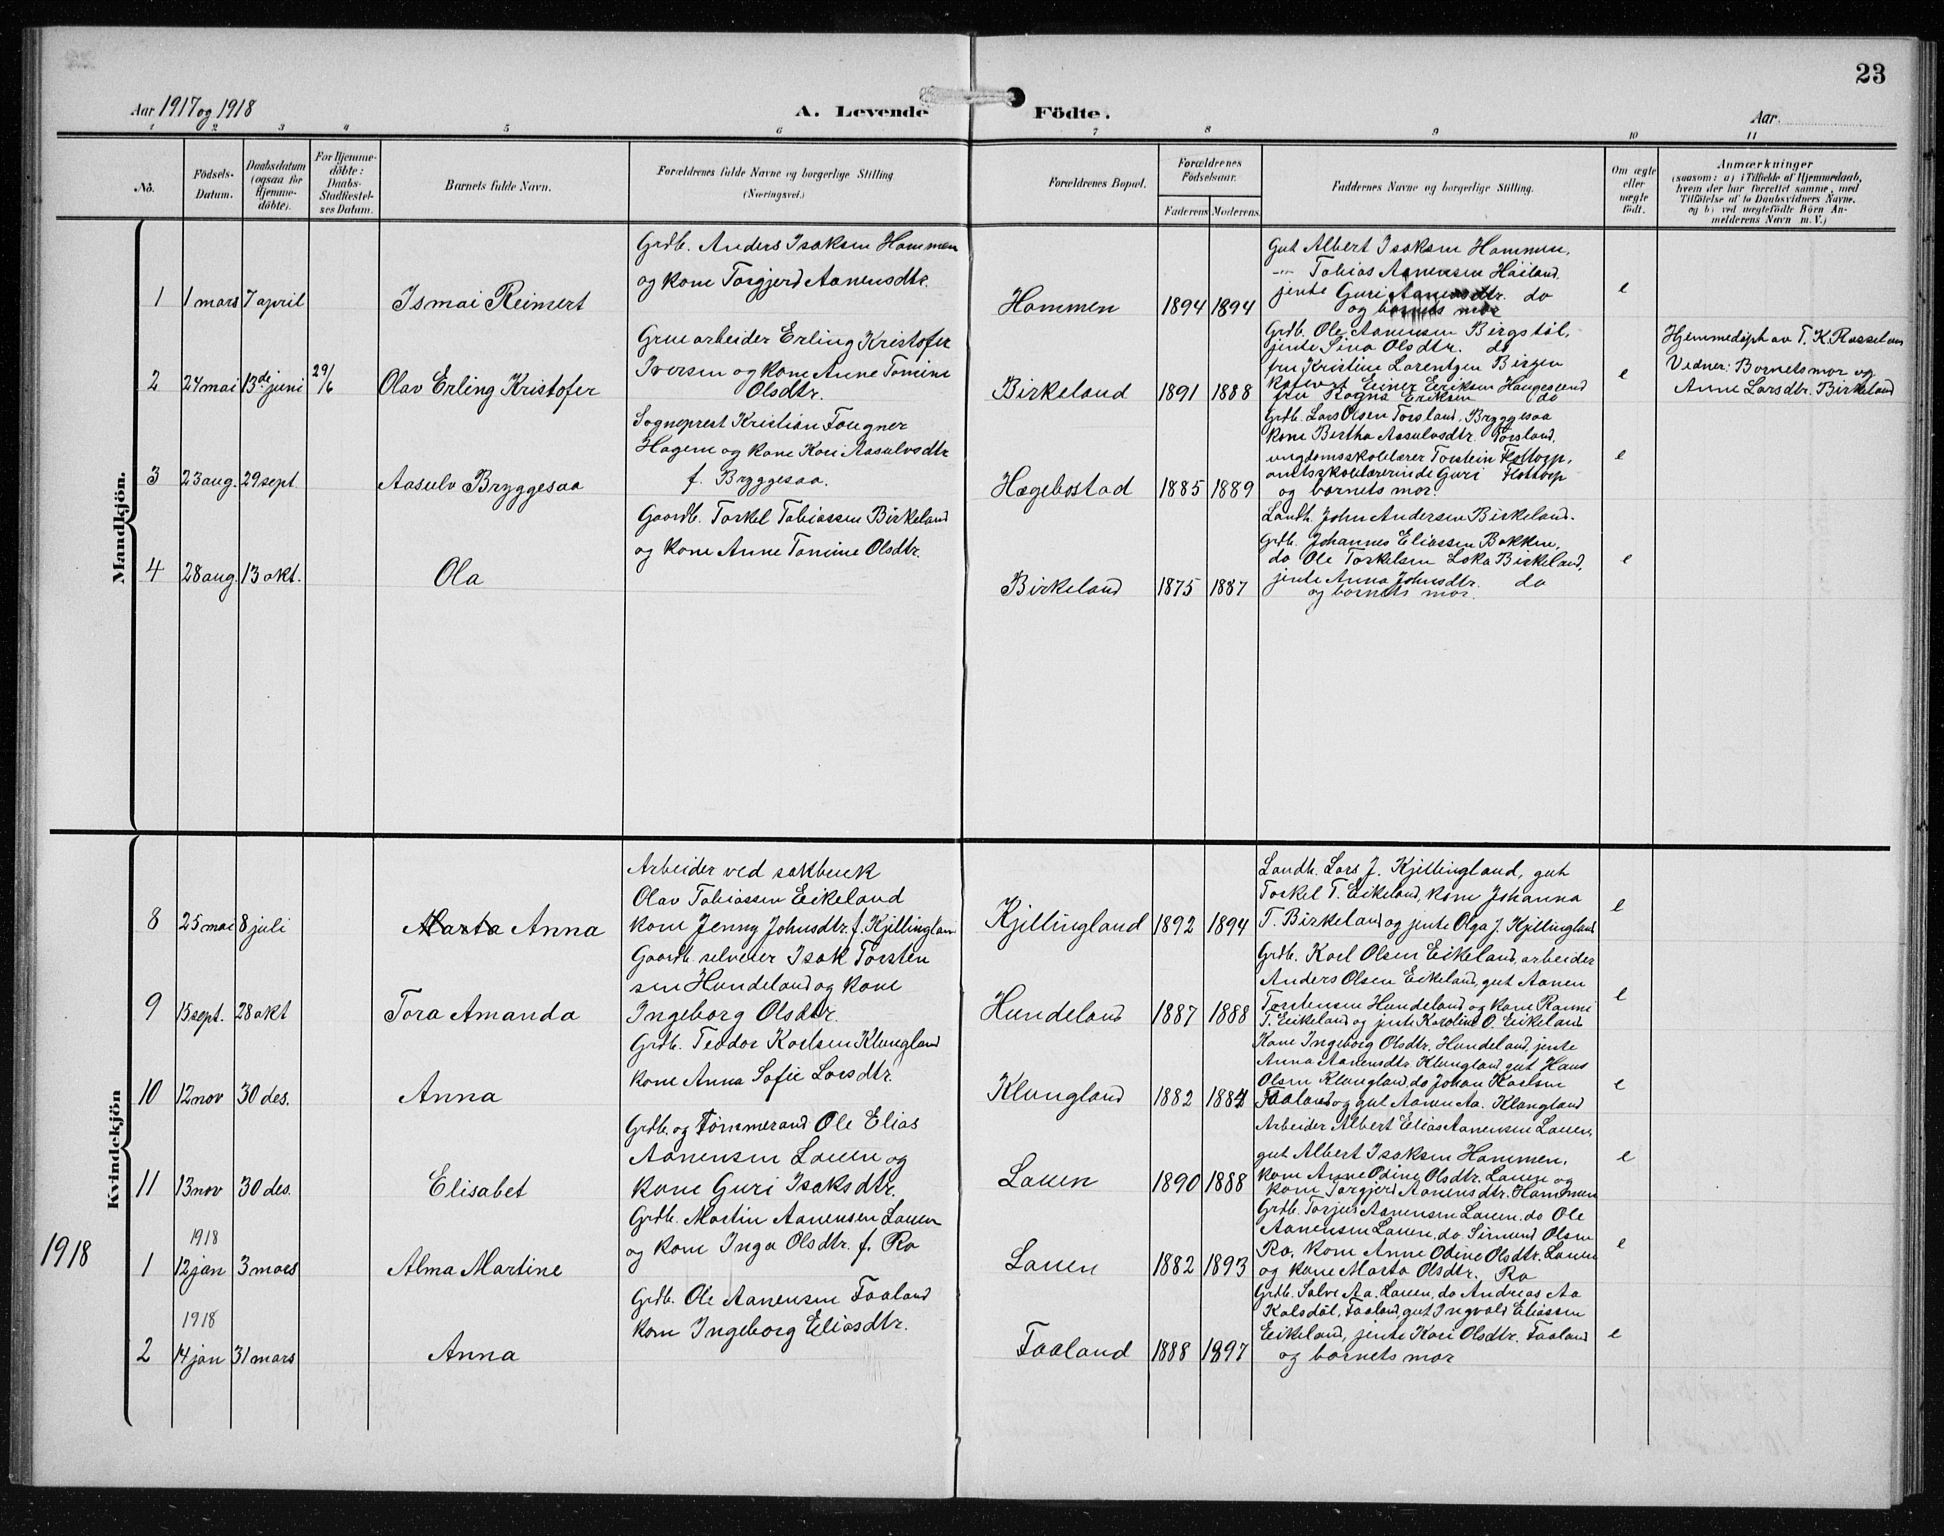 23
Aar 1917 og 1918
A. Levende Födte.
Aar.
1 2 3 4 5 6 7 8 9 10 11
No.
Födsels-Datum.
Daabsdatum (ogsaa for Hjemme-döbte).
For Hjemme-döbte: Daabs-Stadfæstel-ses Datum.
Barnets fulde Navn.
Forældrenes fulde Navne og borgerlige Stilling (Næringsvei.)
Forældrenes Bopæl.
Forældrenes Födselsaar.
Faderens
Moderens
Faddernes Navne og borgerlige Stilling.
Om ægte eller uægte födt.
Anmærkninger
(saasom: a) i Tilfælde af Hjemmedaab,
hvem der har forrettet samme, med
Tilföielse af to Daabsvidners Navne,
og b) ved uægtefödte Börn An-
melderens Navn m. V.)
Mandkjön.
1 1 mars 7 april Ismai Reimert
Grdb. Anders Isaksen Hammen
og kone Torgjerd Aanensdtr.
Hammen 1894 1894
Gut Albert Isaksen Hammen,
— Tobias Aanensen Høiland
jente Guri Aanensdtr. do
og barnets mor
e
2 24 mai 13de juni 29/6 Olav Erling Kristofer
Gruearbeider Erling Kristofer
Iversen og kone Anne Tomine
Olsdtr.
Birkeland 1891 1888
Grdb. Ole Aanensen Birgstøl,
jente Sina Olsdtr. do
fru Kristine Lorentzen Bergen
Einer Eriksen Haugesund
fru Ragna Eriksen do
e
Hjemmedøpt av T. K. Rosseland
Vidner: Barnets mor og
Anne Larsdtr. Birkeland
3 23 aug. 29 sept. Aasulv Bryggesaa
Sogneprest Kristian Fougner
Hagem og kone Kari Aasulvsdtr
f. Bryggesaa.
Hægebostad 1885 1889
Grdb. Lars Olsen Torsland, Bryggesaa
kone Bertha Aasulvsdtr. Torsland,
ungdomsskolelærer Torstein Fottorp,
amtsskolelærerinde Guri Fottorp
og barnets mor.
e
4 28 aug. 13 okt. Ola
Gaardb. Torkel Tobiassen Birkeland
og kone Anne Tomine Olsdtr.
Birkeland 1875 1887
Landh. John Andersen Birkeland.
Grdb. Johannes Eliassen Bakken,
do Ole Torkelsen Loka Birkeland,
jente Anna Johnsdtr. do
og barnets mor.
e
Kvindekjön
8 25 mai 8 juli Marta Anna
Arbeider ved sakbruk
Olav Tobiassen Eikeland
kone Jenny Johnsdtr. f. Kjillingland
Kjillingland 1892 1894
Landh. Lars J. Kjillingland, gut
Torkel T. Eikeland, kone Johanna
T. Birkeland og jente Olga J. Kjillingland
e
9 15 sept. 28 okt Tora Amanda
Gaardb. selveier Isak Torsten
sen Hundeland og kone
Ingeborg Olsdtr.
Hundeland 1887 1888
Grdb. Karl Olsen Eikeland, arbeider
Anders Olsen Eikeland, gut Aanen
Torstensen Hundeland og kone Ranni
T. Eikeland og jente Karoline O. Eikeland
e
10 12 nov 30 des. Anna
Grdb. Teodor Karlsen Klungland
kone Anna Sofie Larsdtr.
Klungland 1882 1884
Kone Ingeborg Olsdtr. Hundeland, jente
Anna Aanensdtr Klungland, gut Hans
Olsen Klungland, do Johan Karlsen
Faaland og gut Aanen Aa. Klungland
e
11 13 nov 30 des. Elisabet
Grdb. og Tømmermand Ole Elias
Aanensen Lauen og
kone Guri Isaksdtr.
Lauen 1890 1888
Arbeider Albert Elias Aanensen Lauen,
gut Albert Isaksen Hammen,
kone Anne Odine Olsdtr. Lauen og
kone Torgjerd Aanensdtr. Hammen
e
1918
1918
1 12 jan 3 mars Alma Martine
Grdb. Martin Aanensen Lauen
og kone Inga Olsdtr. f. Ro
Lauen 1882 1893
Grdb. Torjus Aanensen Lauen, do Ole
Aanensen Lauen, do Simund Olsen
Ro, kone Anne Odine Olsdtr. Lauen
og kone Marta Olsdtr. Ro
e
1918
2 14 jan 31 mars Anna
Grdb. Ole Aanensen Faaland
kone Ingeborg Eliasdtr.
Faaland 1888 1897
Grdb. Salve Aa. Lauen, do Andreas Aa
Kalsdal, Faaland, gut Ingvald Eliassen
Eikeland, jente Kari Olsdtr. Faaland
og barnets mor
e